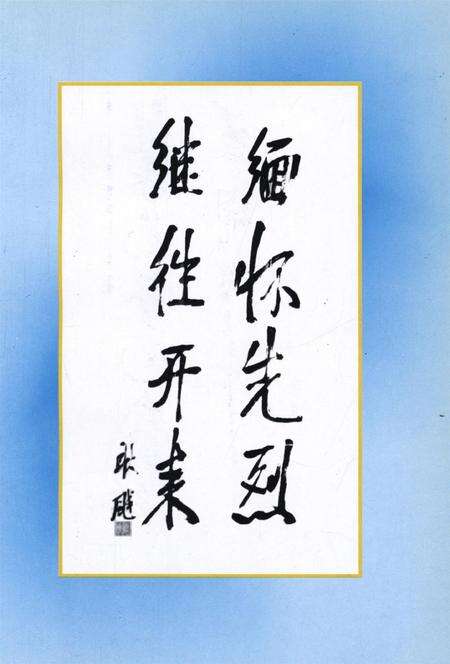 缅怀先烈
继往开来